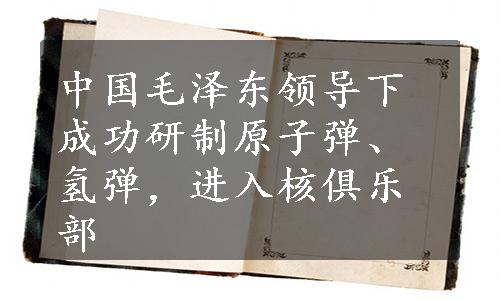 中国毛泽东领导下
成功研制原子弹、
氢弹，进入核俱乐
部